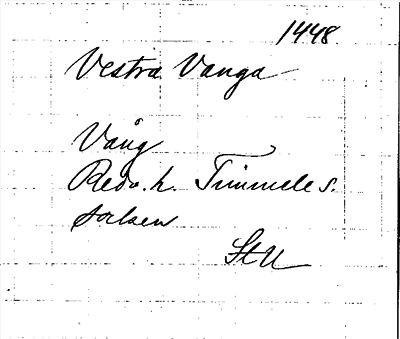 1448.
Vestra Vånga
Vång
Redv. h. Timmele s.
socknen
StU